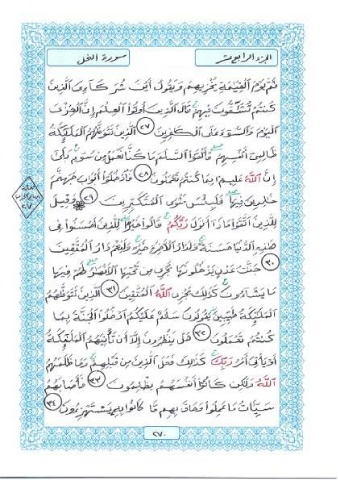 الجزء الرابع عشر
سورة النحل
ثُمَّ يَوْمَ الْقِيَٰمَةِ يُخْزِيهِمْ وَيَقُولُ أَيْنَ شُرَكَآءِىَ الَّذِينَ
كُنتُمْ تُشَٰٓقُّونَ فِيهِمْ قَالَ الَّذِينَ أُوتُوا۟ الْعِلْمَ إِنَّ الْخِزْىَ
الْيَوْمَ وَالسُّوٓءَ عَلَى الْكَٰفِرِينَ ٢٧ الَّذِينَ تَتَوَفَّىٰهُمُ الْمَلَٰٓئِكَةُ
ظَالِمِىٓ أَنفُسِهِمْ فَأَلْقَوُا۟ السَّلَمَ مَا كُنَّا نَعْمَلُ مِن سُوٓءٍ بَلَىٰٓ
إِنَّ اللَّهَ عَلِيمٌۢ بِمَا كُنتُمْ تَعْمَلُونَ ٢٨ فَادْخُلُوٓا۟ أَبْوَٰبَ جَهَنَّمَ
خَٰلِدِينَ فِيهَا فَلَبِئْسَ مَثْوَى الْمُتَكَبِّرِينَ ٢٩ وَقِيلَ
لِلَّذِينَ اتَّقَوْا۟ مَاذَآ أَنزَلَ رَبُّكُمْ قَالُوا۟ خَيْرًا لِّلَّذِينَ أَحْسَنُوا۟ فِى
هَٰذِهِ الدُّنْيَا حَسَنَةٌ وَلَدَارُ الْءَاخِرَةِ خَيْرٌ وَلَنِعْمَ دَارُ الْمُتَّقِينَ
٣٠ جَنَّٰتُ عَدْنٍ يَدْخُلُونَهَا تَجْرِى مِن تَحْتِهَا الْأَنْهَٰرُ لَهُمْ فِيهَا
مَا يَشَآءُونَ كَذَٰلِكَ يَجْزِى اللَّهُ الْمُتَّقِينَ ٣١ الَّذِينَ تَتَوَفَّىٰهُمُ
الْمَلَٰٓئِكَةُ طَيِّبِينَ يَقُولُونَ سَلَٰمٌ عَلَيْكُمُ ادْخُلُوا۟ الْجَنَّةَ بِمَا
كُنتُمْ تَعْمَلُونَ ٣٢ هَلْ يَنظُرُونَ إِلَّآ أَن تَأْتِيَهُمُ الْمَلَٰٓئِكَةُ
أَوْ يَأْتِىَ أَمْرُ رَبِّكَ كَذَٰلِكَ فَعَلَ الَّذِينَ مِن قَبْلِهِمْ وَمَا ظَلَمَهُمُ
اللَّهُ وَلَٰكِن كَانُوٓا۟ أَنفُسَهُمْ يَظْلِمُونَ ٣٣ فَأَصَابَهُمْ
سَيِّـَٔاتُ مَا عَمِلُوا۟ وَحَاقَ بِهِم مَّا كَانُوا۟ بِهِۦ يَسْتَهْزِءُونَ ٣٤
٢٧٠